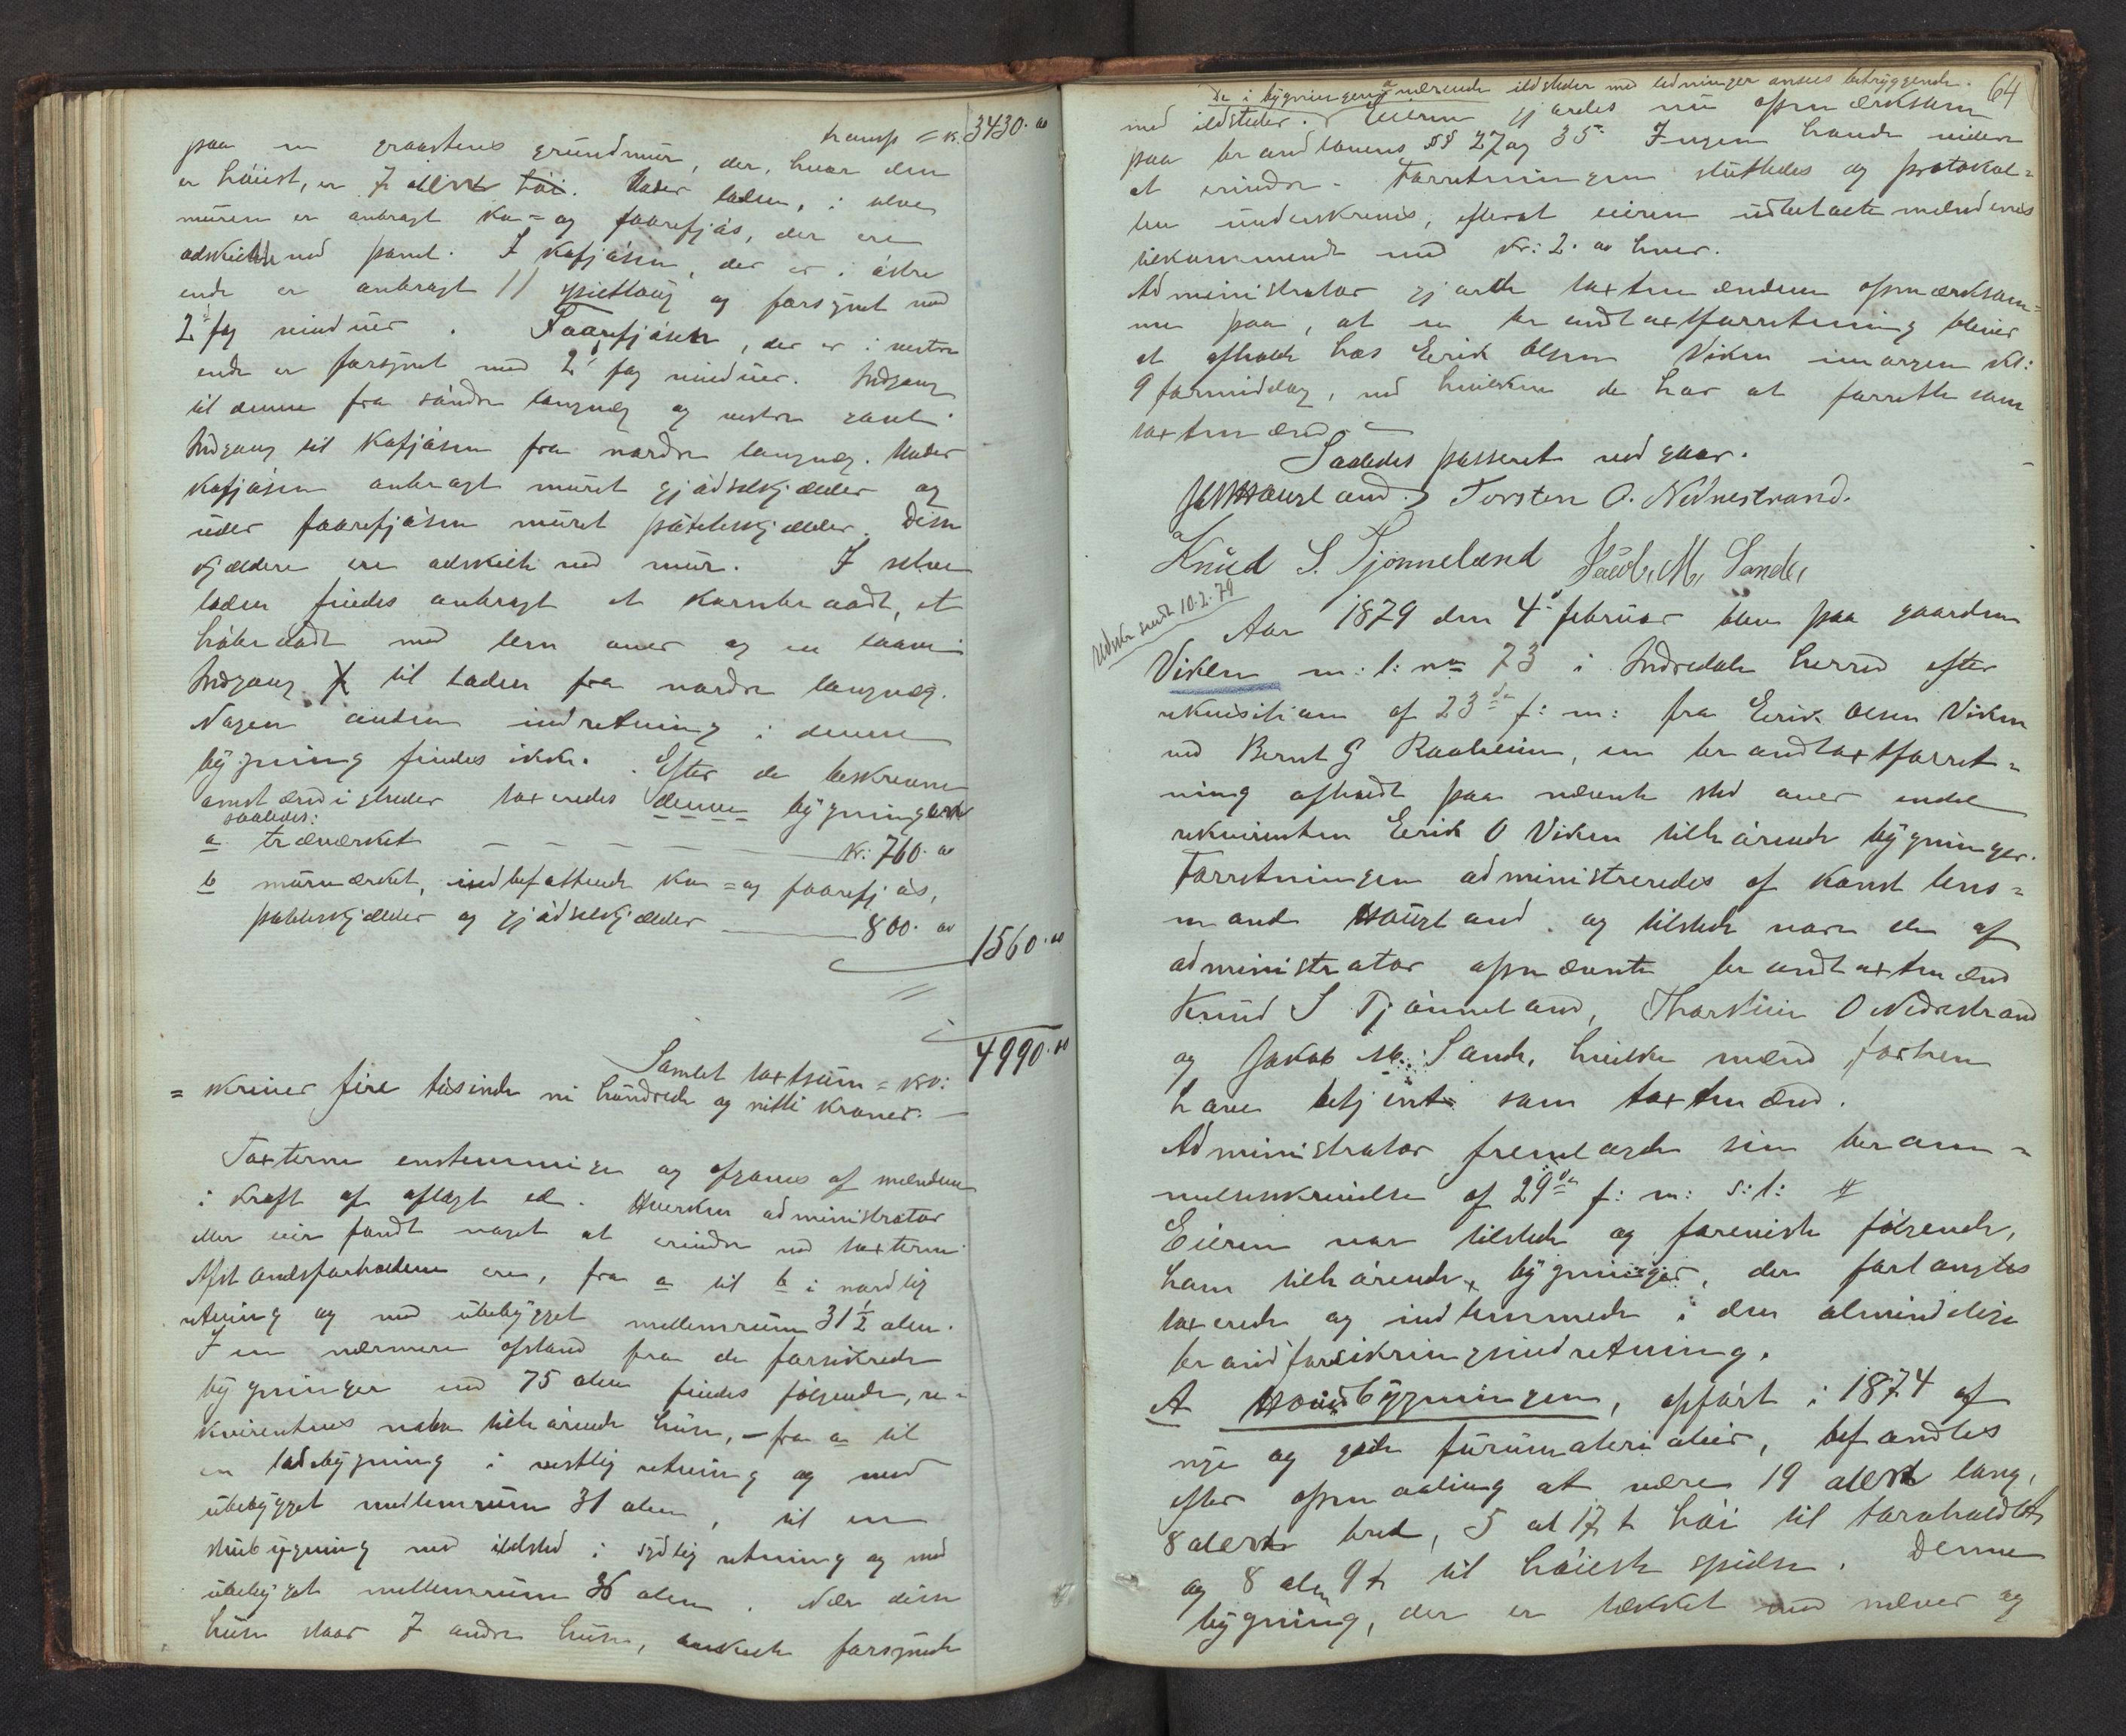 transp = kr. 3430. 00
paa en graastens grundmur, der, hvor den
er høiest, er 7 alen høi. Under laden, i selve
muren er anbragt ko= og faarefjøs, der ere
adskildte ved panel. I kofjøsen, der er i østre
ende er anbragt 11 og forsynet med
2 fag vinduer. Faarefjøsen, der er i vestre
ende er forsynet med 2 fag vinduer. Indgang
til denne fra søndre langvæg og vestre gavl.
Indgang til kofjøsen fra nordre langvæg. Under
kofjøsen anbragt muret gjødselkjælder og
under faarefjøsen muret potetkjælder. Disse
kjældere ere adskilte ved mur. I selve
laden findes anbragt et kornbraadt, et
høbraadt med lem over og en laave.
Indgang til laden fra nordre langvæg.
Nogen anden indretning i denne
bygning findes ikke. Efter de beskrevne
omstændigheder taxeredes denne bygning
saaledes:
a træværket kr: 760. 00
b murværket, indbefattende ko= og faarefjøs,
potetkjælder og gjødselkjælder 800. 00
1560. 00
Samlet taxtsum = kr: 4990. 00
= skriver fire tusinde ni hundrede og nitti kroner. —
Taxterne enstemmige og afgaves af mændene
i kraft af aflagt ed. Hverken administrator
eller eier fandt noget at erindre ved taxterne.
Afstandsforholdene ere, fra a til b i nordlig
retning og med ubebygget mellemrum 31 1/2 alen.
I en nærmere afstand fra de forsikrede
bygninger end 75 alen findes følgende, re=
kvirentens nabo tilhørende huse, — fra a til
en ladebygning i vestlig retning og med
ubebygget mellemrum 31 alen, til en
stuebygning med ildsted i sydlig retning og med
ubebygget mellemrum 36 alen. Nær disse
huse staar 7 andre huse, enkelte forsynede
64
De i bygningen værende ildsteder med ledninger ansees betryggende.
med ildsteder. Eieren gjordes nu opmærksom
paa brandlovens §§ 27 og 35. Ingen havde videre
at erindre. Forretningen sluttedes og protokol=
len underskreves, efterat eieren udbetalte mændenes
tilkommende med kr: 2. 00 hver.
Administrator gjorde taxtmændene opmærksom=
me paa, at en brandtaxtforretning bliver
at afholde hos Eerik Olsen Viken imorgen kl:
9 formiddag, ved hvilken de har at forrette som
taxtmænd.
Saaledes passeret vedgaar.
Haugland. Torsten O. Nednestrand.
Knud S. Tjønneland Jacob. M. Sande.
Udskr sendt 10.2.79
Aar 1879 den 4de februar blev paa gaarden
Viken m: l: no 73 i Indredale herred efter
rekvisition af 23de f: m: fra Eerik Olsen Viken
ved Bernt G Raaheim, en brandtaxtforret=
ning afholdt paa nævnte sted over endel
rekvirenten Eerik O Viken tilhørende bygninger.
Forretningen administreredes af konst lens=
mand Haugland og tilstede vare de af
administrator opnævnte brandtaxtmænd
Knud S Tjønneland, Thorstein O Nedrestrand
og Jakob M. Sande, hvilke mænd forhen
have betjent som taxtmænd.
Administrator fremlagde sin beram=
melsesskrivelse af 29de f: m: s: l:
Eieren var tilstede og foreviste følgende,
ham tilhørende, bygninger, der forlangtes
taxerede og indlemmede i den almindelige
brandforsikringsindretning.
A Hovedbygningen, opført i 1874 af
nye og gode furumaterialier, befandtes
efter opmaaling at være 19 alen lang,
8 alen bred, 5 al 17 t høi til taraholdet
og 8 alen 9 t til høieste spidse. Denne
bygning, der er tækket med næver og